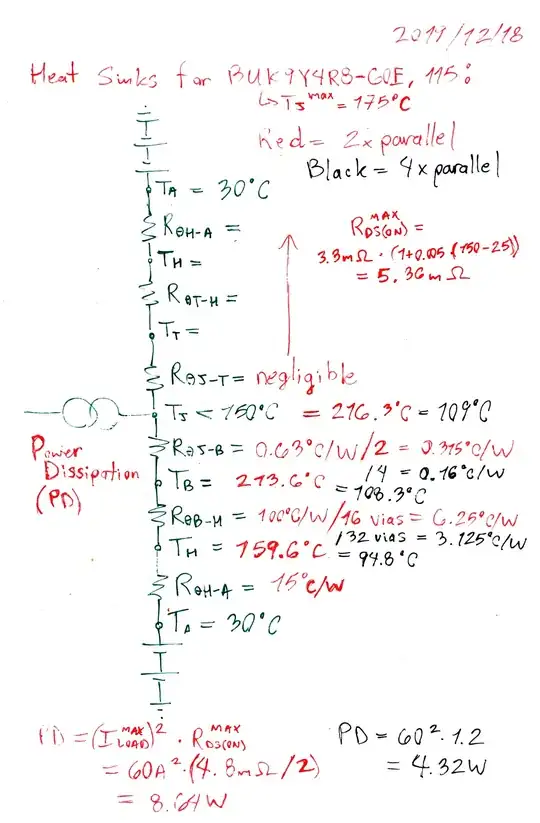 2019/12/18
Heat Sinks for BUK9Y4R8-60E, 115:
↳ TJ max = 175°C
Red = 2x parallel
Black = 4x parallel
TA = 30°C
RθH-A =
TH =
RθT-H =
TT =
RDS(ON) MAX =
3.3mΩ · (1+0.005 (150-25))
= 5.36mΩ
RθJ-T = negligible
TJ < 150°C = 216.3°C = 109°C
Power Dissipation (PD)
RθJ-B = 0.63°C/W/2 = 0.315°C/W
/4 = 0.16°C/W
TB = 213.6°C = 108.3°C
RθB-H = 100°C/W/16 vias = 6.25°C/W
/32 vias = 3.125°C/W
TH = 159.6°C = 94.8°C
RθH-A = 15°C/W
TA = 30°C
PD = (I LOAD MAX)² · RDS(ON) MAX
= 60A² · (4.8mΩ/2)
= 8.64W
PD = 60² · 1.2
= 4.32W